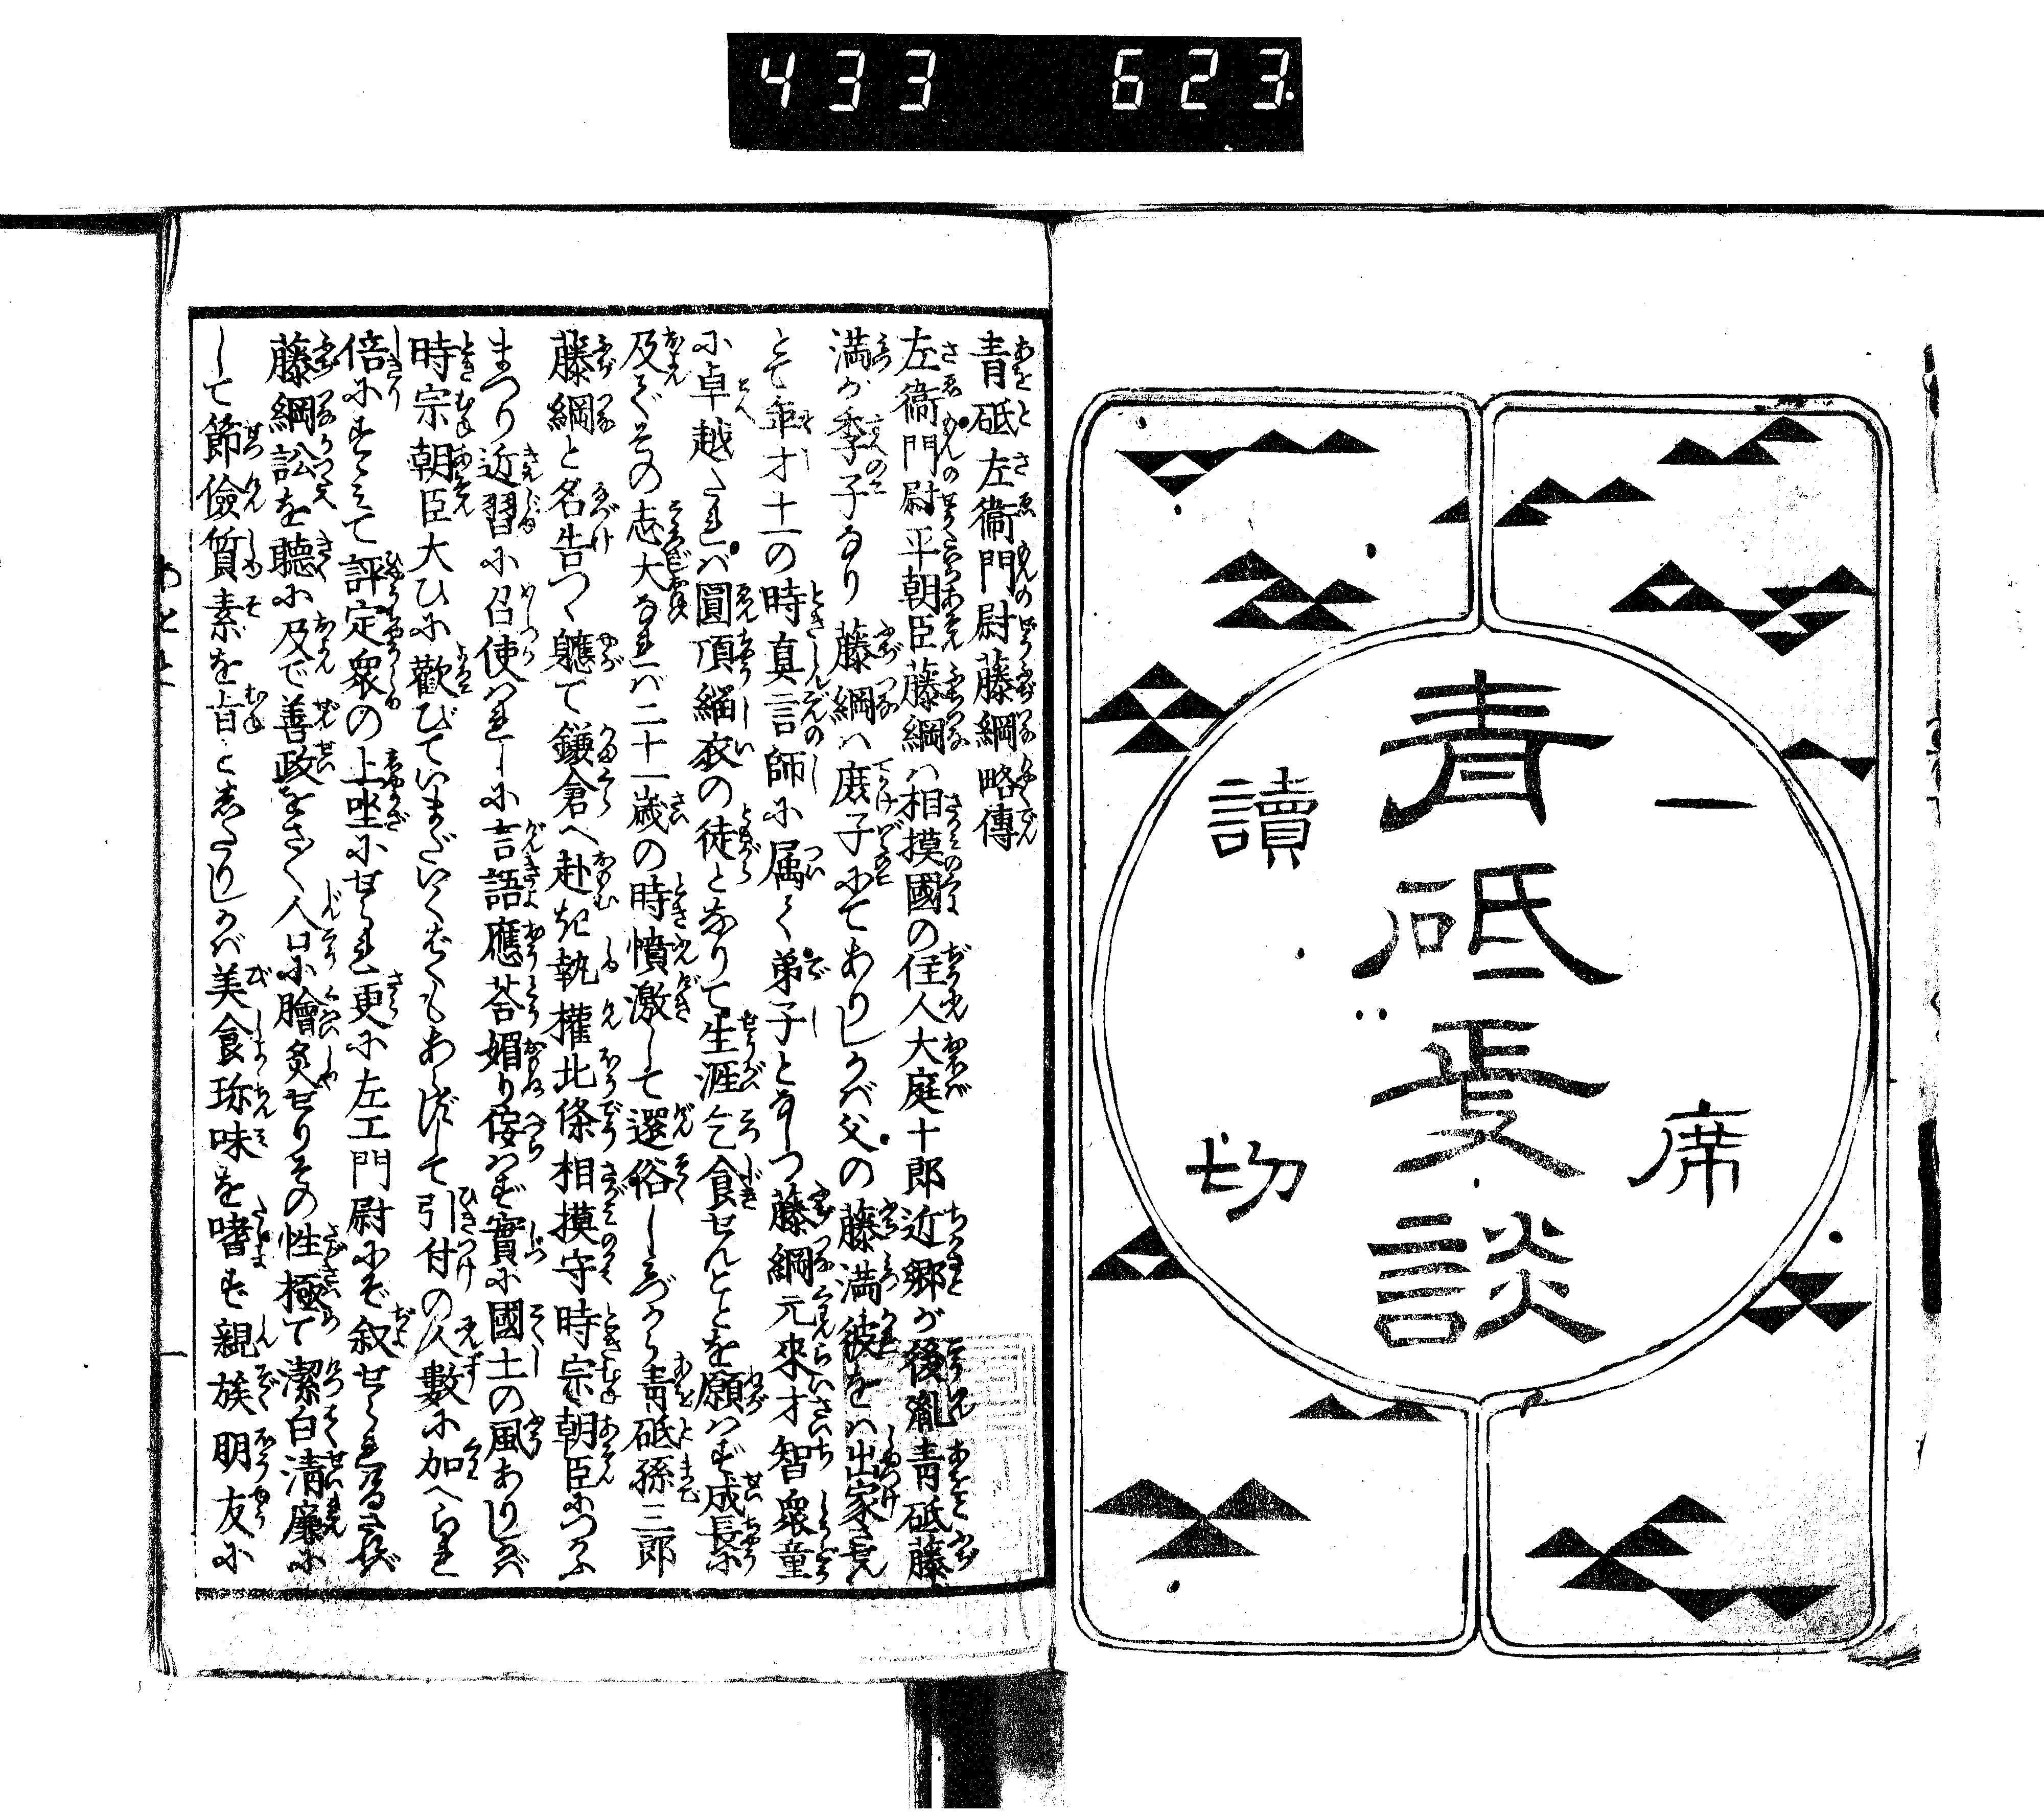 433 623.
一席
青砥政談
讀切
青砥左衞門尉藤綱略傳
左衞門尉平朝臣藤綱ハ相摸國の住人大庭十郎近郷が後胤青砥藤
満が季子なり藤綱ハ庶子にてありしかば父の藤満彼をバ出家させん
とて年才十一の時真言師に属て弟子となしつ藤綱元来才智衆童
に卓越たれバ圓頂緇衣の徒となりて生涯乞食せんことを願ハず成長に
及びその志大なれバ二十一歳の時憤激して還俗しみづから青砥孫三郎
藤綱と名告つゝ軈て鎌倉へ赴き執權北條相摸守時宗朝臣につかふ
まつり近習に召使ハれしに言語應荅媚り侫ハず實に國土の風ありしかば
時宗朝臣大ひに歡びていまだいくばくもあらずして引付の人數に加へられ
倍にすゝみて評定衆の上坐にせられ更に左工門尉にぞ叙せられ
藤綱訟を聴に及で善政をさ〱人口に膾炙せりその性極て潔白清廉に
して節儉質素を旨としたりしかば美食珎味を嗜ず親族朋友に